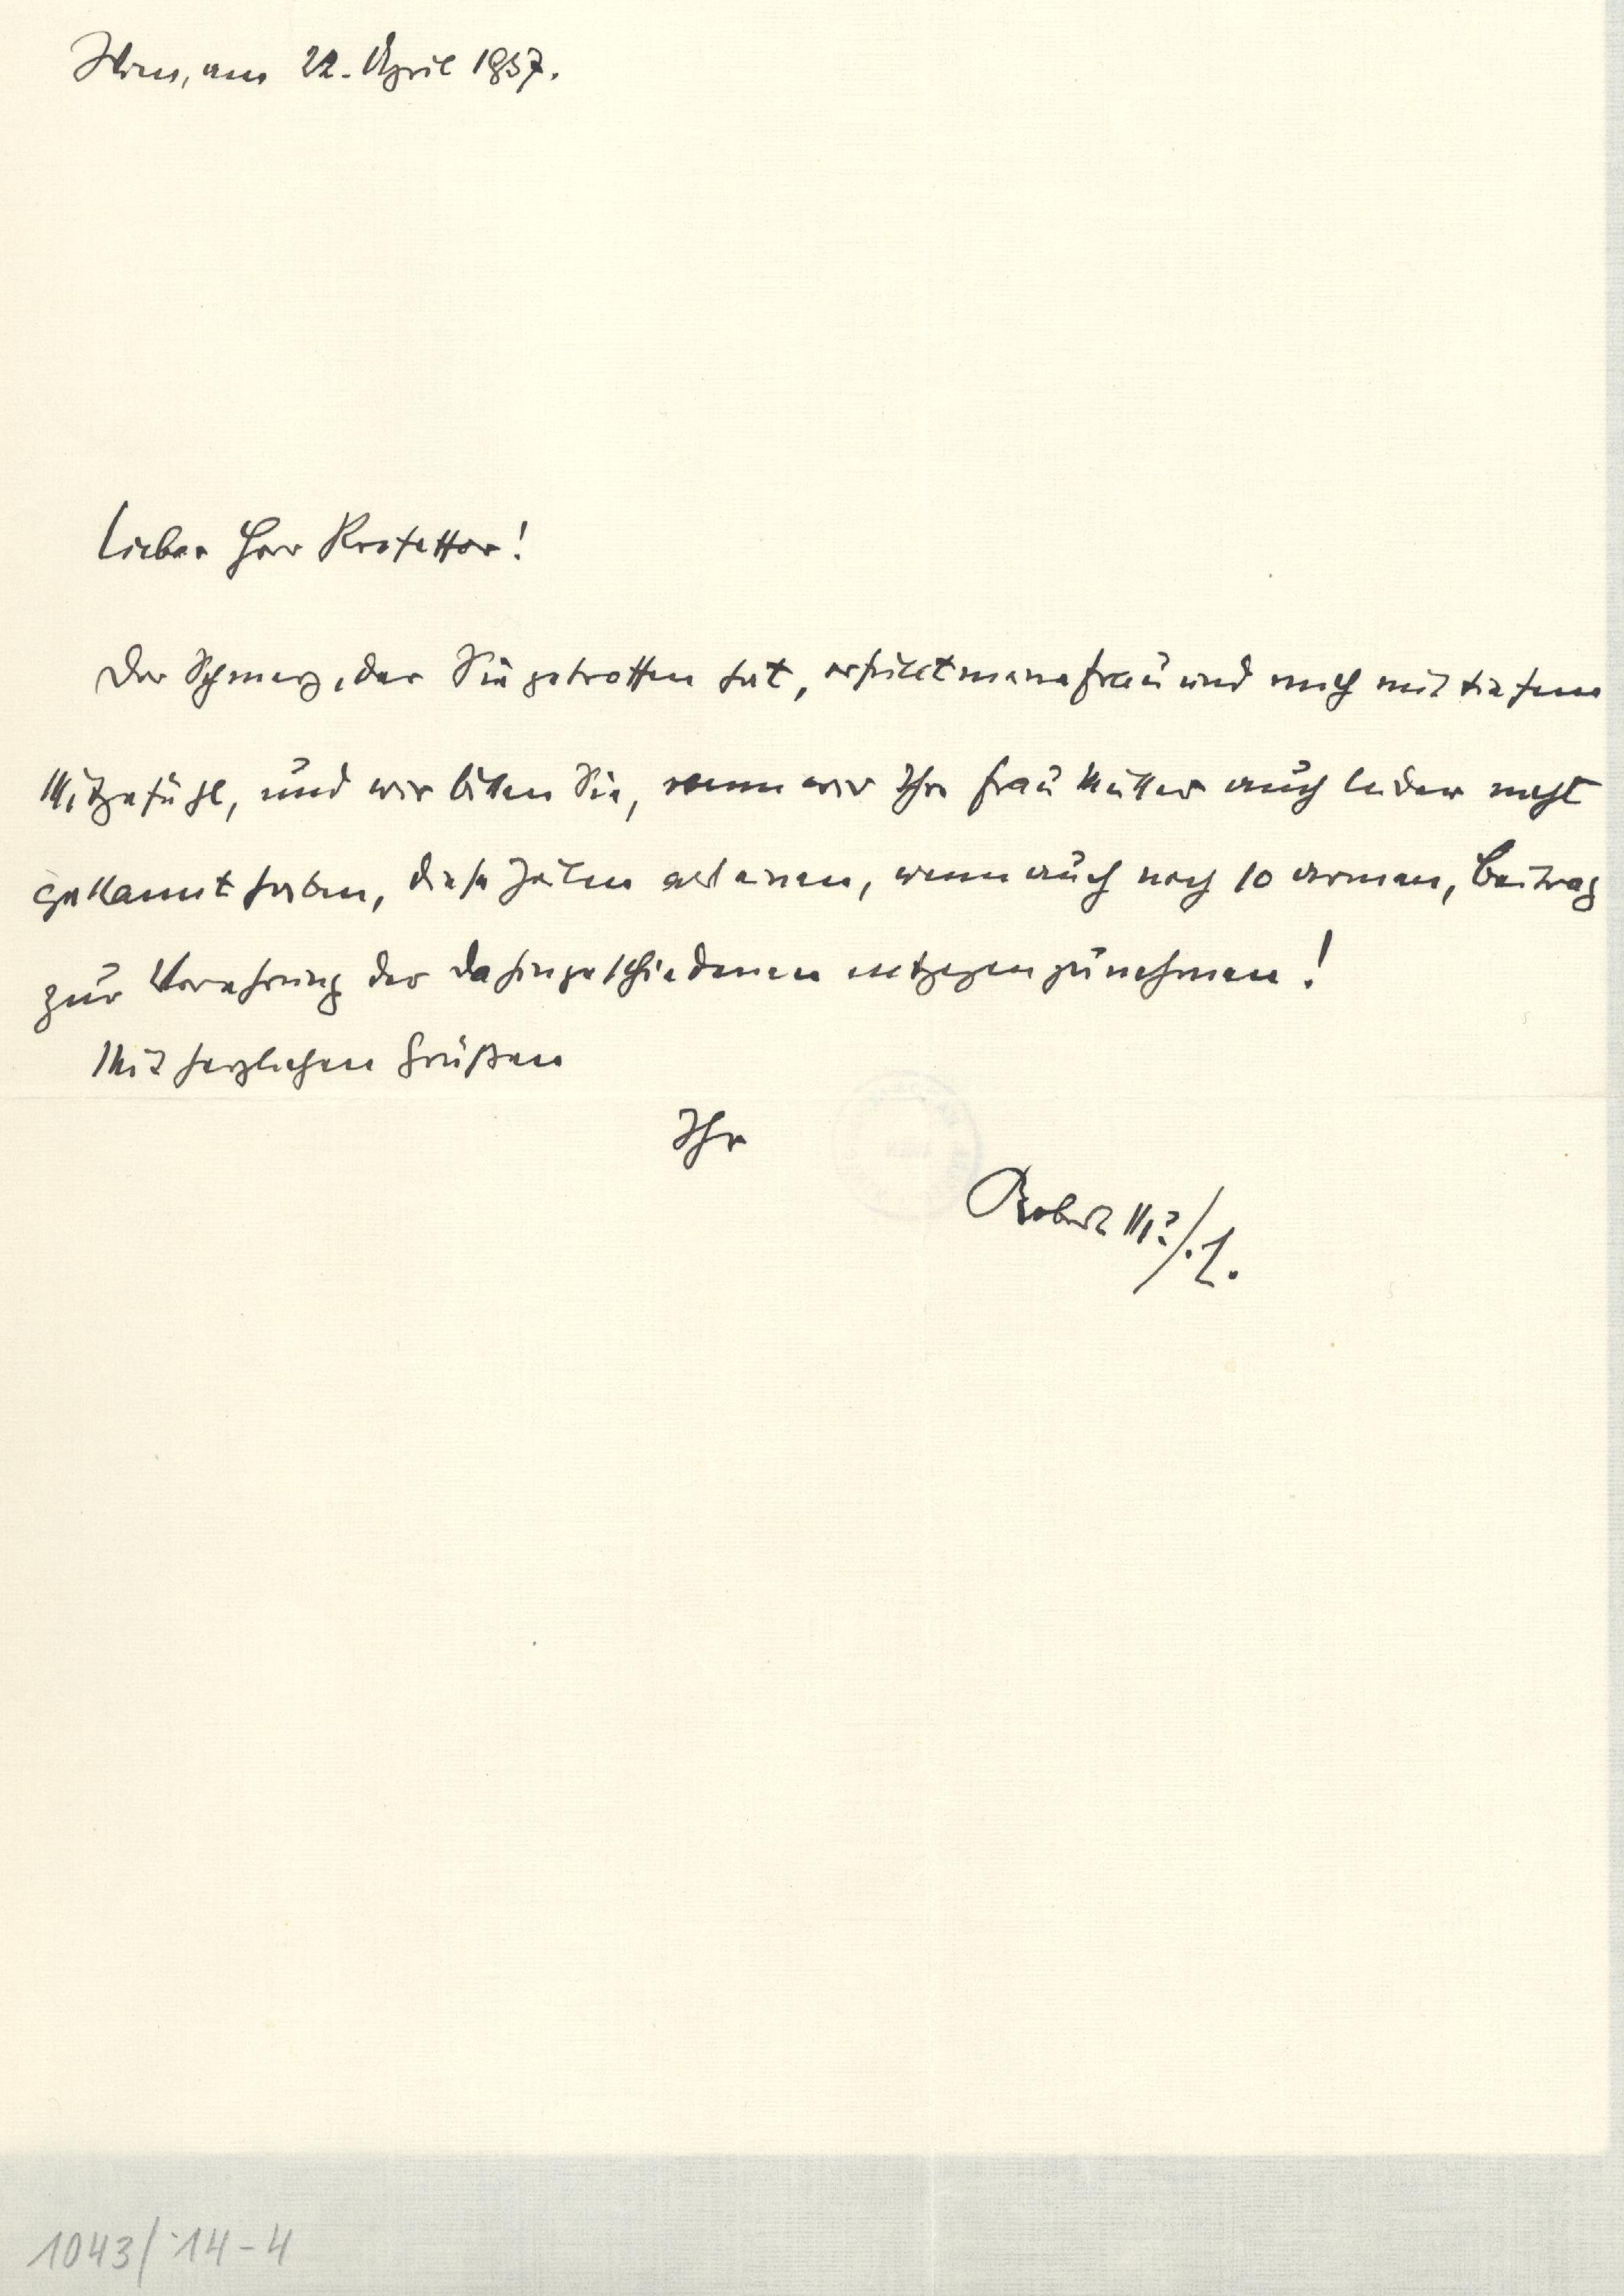 Wien, am 22. April 1937.
Lieber Herr Professor!
Der Schmerz, der Sie getroffen hat, erfüllt meine Frau und mich mit tiefem
Mitgefühl, und wir bitten Sie, wenn wir Ihre Frau Mutter auch leider nicht
gekannt haben, diese Zeilen als einen, wenn auch noch so armen, Beitrag
zur Verehrung der Dahingeschiedenen entgegenzunehmen!
Mit herzlichen Grüßen
Ihr
Robert
1043/14-4